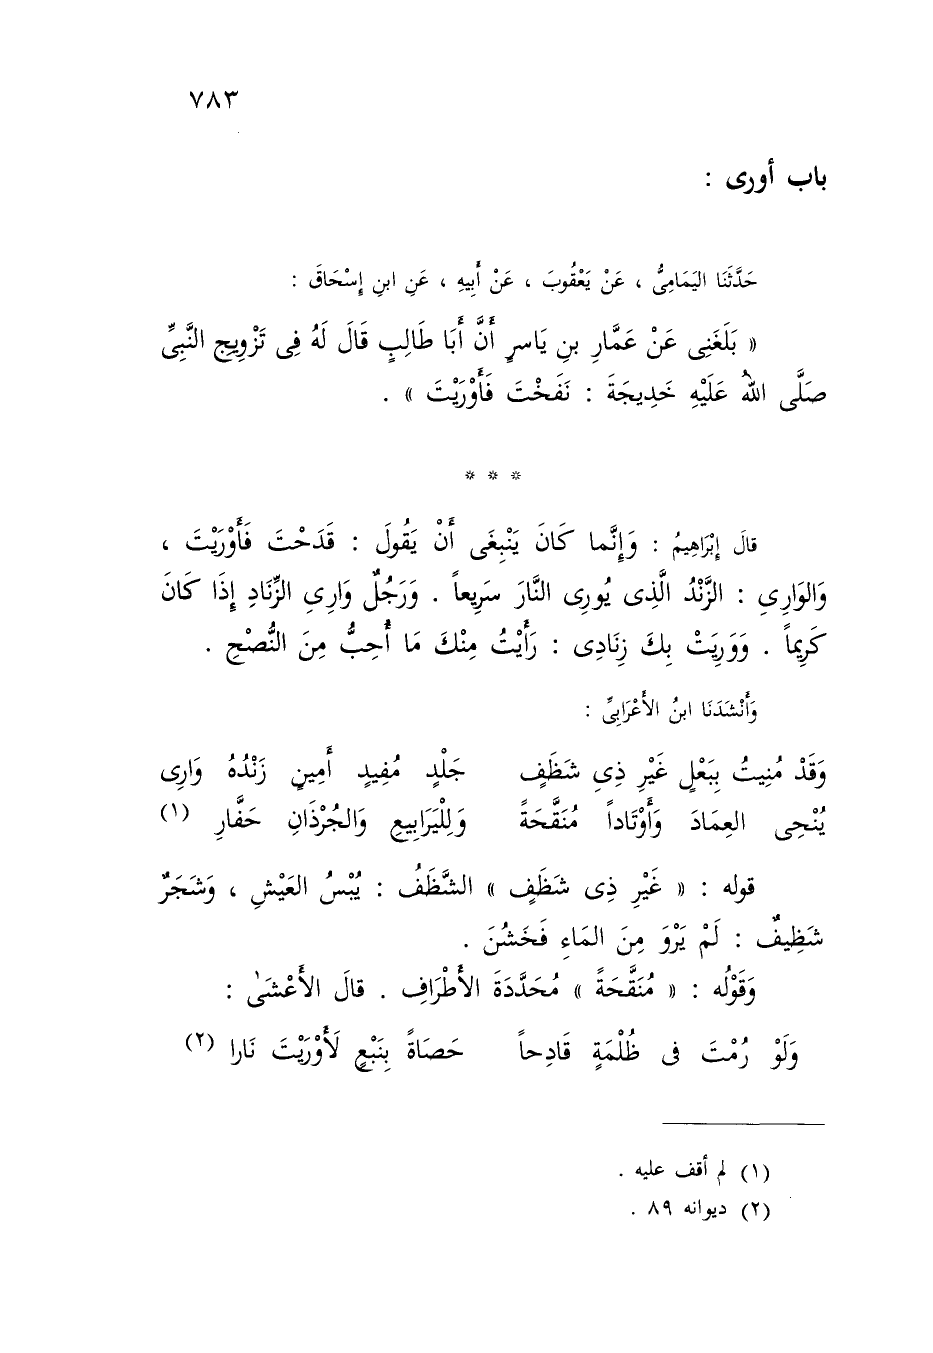 ٧٨٣
باب أورى :
حَدَّثَنَا اليَمَامِىُّ ، عَنْ يَعْقُوبَ ، عَنْ أَبِيهِ ، عَنِ ابنِ إِسْحَاقَ :
« بَلَغَنِى عَنْ عَمَّارِ بنِ يَاسرٍ أَنَّ أَبَا طَالِبٍ قَالَ لَهُ فِى تَزْوِيجِ النَّبِىِّ
صَلَّى اللهُ عَلَيْهِ خَدِيجَةَ : نَفَخْتَ فَأَوْرَيْتَ » .
* * *
قالَ إِبْرَاهِيمُ : وَإِنَّما كَانَ يَنْبِغَى أَنْ يَقُولَ : قَدَحْتَ فَأَوْرَيْتَ ،
وَالوَارِىِ : الزَّنْدُ الَّذِى يُورِى النَّارَ سَرِيعاً . وَرَجُلٌ وَارِىِ الزِّنَادِ إِذَا كَانَ
كَرِيماً . وَوَرِيَتْ بِكَ زِنَادِى : رَأَيْتُ مِنْكَ مَا أُحِبُّ مِنَ النُّصْحِ .
وَأَنْشَدَنَا ابنُ الأَعْرَابِىِّ :
وَقَدْ مُنِيتُ بِبَعْلٍ غَيْرِ ذِىِ شَظَفٍ جَلْدٍ مُفِيدٍ أَمِينٍ زَنْدُهُ وَارِى
يُنْحِى العِمَادَ وَأَوْتَاداً مُنَقَّحَةً وَلِلْيَرَابِيعِ وَالجُرْذَانِ حَفَّارِ (١)
قوله : « غَيْرِ ذِى شَظَفٍ » الشَّظَفُ : يُبْسُ العَيْشِ ، وَشَجَرٌ
شَظِيفٌ : لَمْ يَرْوَ مِنَ المَاءِ فَخَشُنَ .
وَقَوْلُه : « مُنَقَّحَةً » مُحَدَّدَةَ الأَطْرَافِ . قالَ الأَعْشَىٰ :
وَلَوْ رُمْتَ فى ظُلْمَةٍ قَادِحاً حَصَاةً بِنَبْعٍ لَأَوْرَيْتَ نَارا (٢)
(١) لم أقف عليه .
(٢) ديوانه ٨٩ .